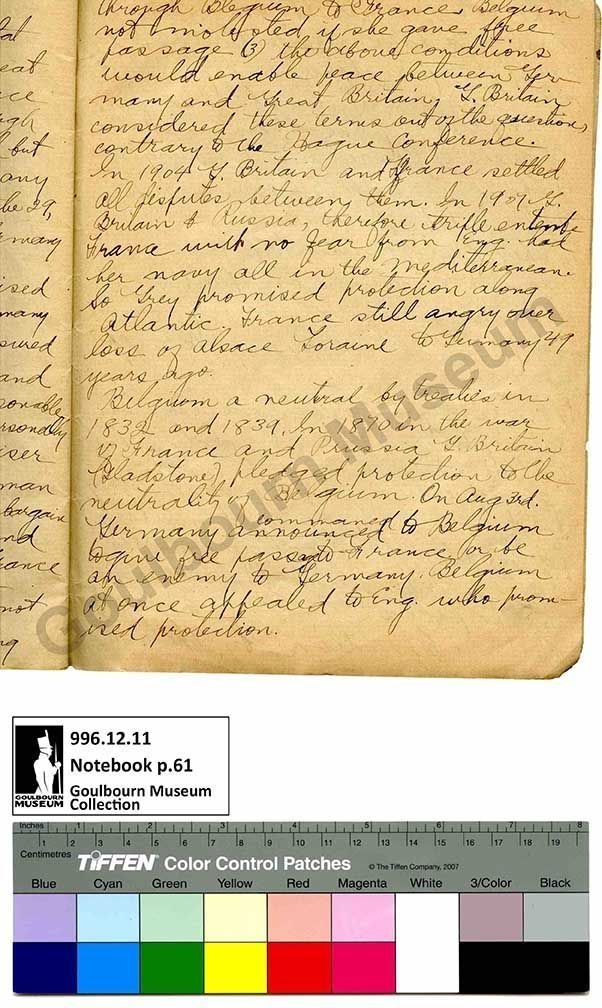 through Blegium to France, Belgium
not molested, if she gave free
passage (3) the above conditions
would enable peace between Ger-
many and Great Britain, G. Britain
considered these terms out of the question,
contrary to the Hague Conference.
In 1904 G Britain and France settled
all disputes between them. In 1907 G.
Britain & Russia, therefore triple entente
France with no fear from Eng. had
her navy all in the Mediterranean.
So Grey promised protection along
Atlantic. France still angry over
loss of Alsace Loraine to Germany 49
years ago.
Belguim a neutral by treaties in
1832 and 1839. In 1870 in the war
of France and Prussia G. Britain
(Gladstone) pledged protection to the
neutrality of Belgium. On Aug 3rd.
Germany announced commaned to Belgium
to give free passage to France, or be
an enemy to Germany. Belgium
at once appealed to Eng. who prom-
ised protection.
eat
but
any
the 29,
many
ised
many
and
sonable
rsonally
iser
man
bargain
nd
not
Goulbourn Museum
996.12.11
Notebook p.61
Goulbourn Museum
Collection
GOULBOURN
MUSEUM
Inches 1 2 3 4 5 6 7 8
Centimetres 1 2 3 4 5 6 7 8 9 10 11 12 13 14 15 16 17 18 19
TIFFEN Color Control Patches © The Tiffen Company, 2007
Blue Cyan Green Yellow Red Magenta White 3/Color Black